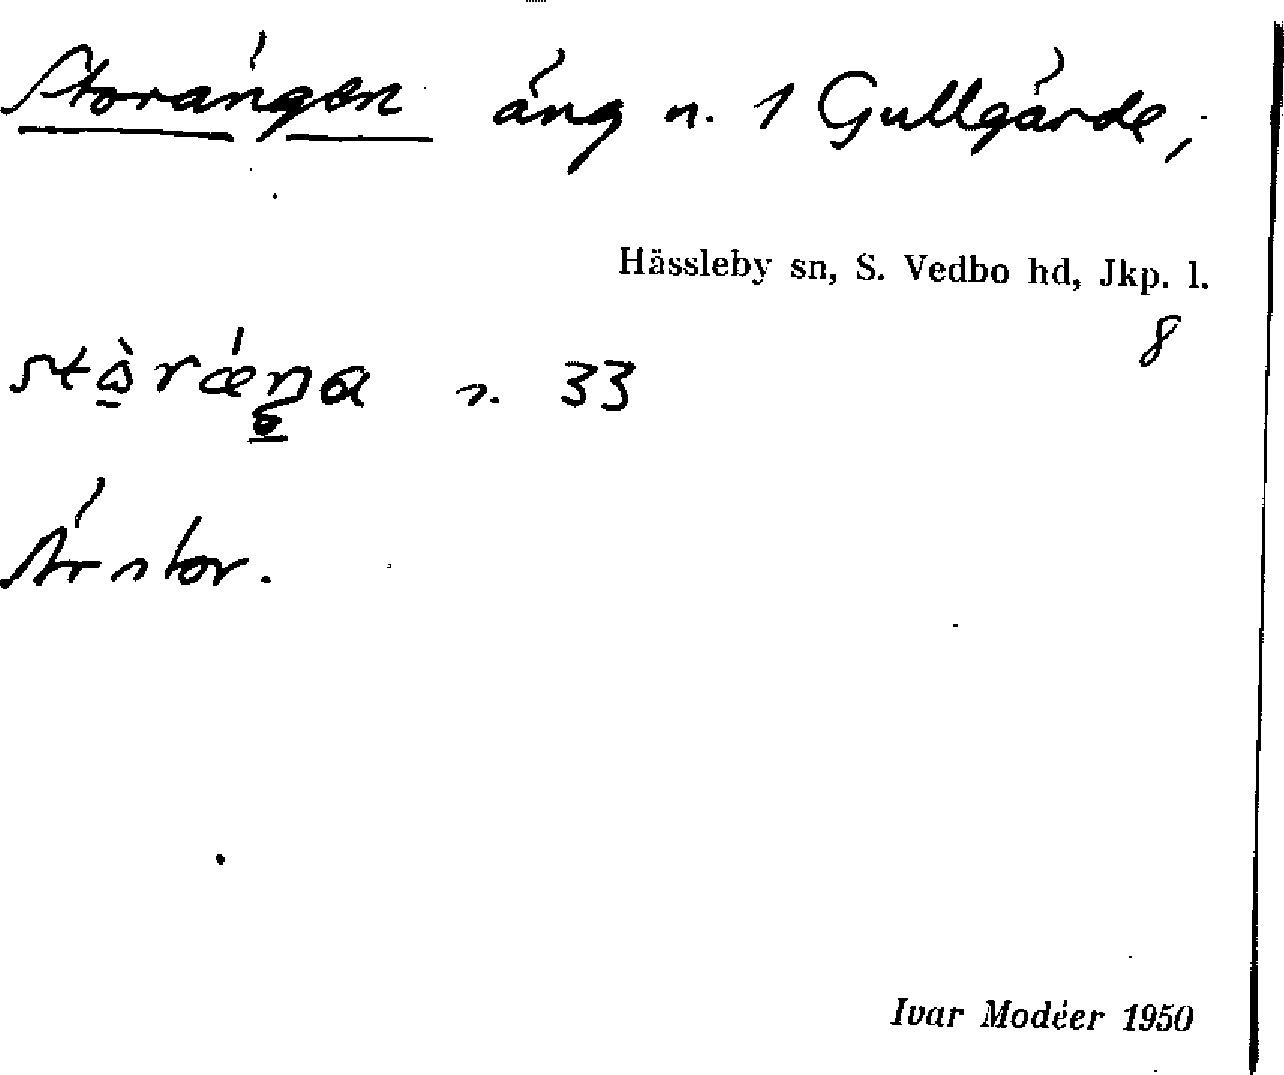 Storängen äng n. 1 Gullgärde,
Hässleby sn, S. Vedbo hd, Jkp. l.
8
n. 33
Är stor.
Ivar Modéer 1950